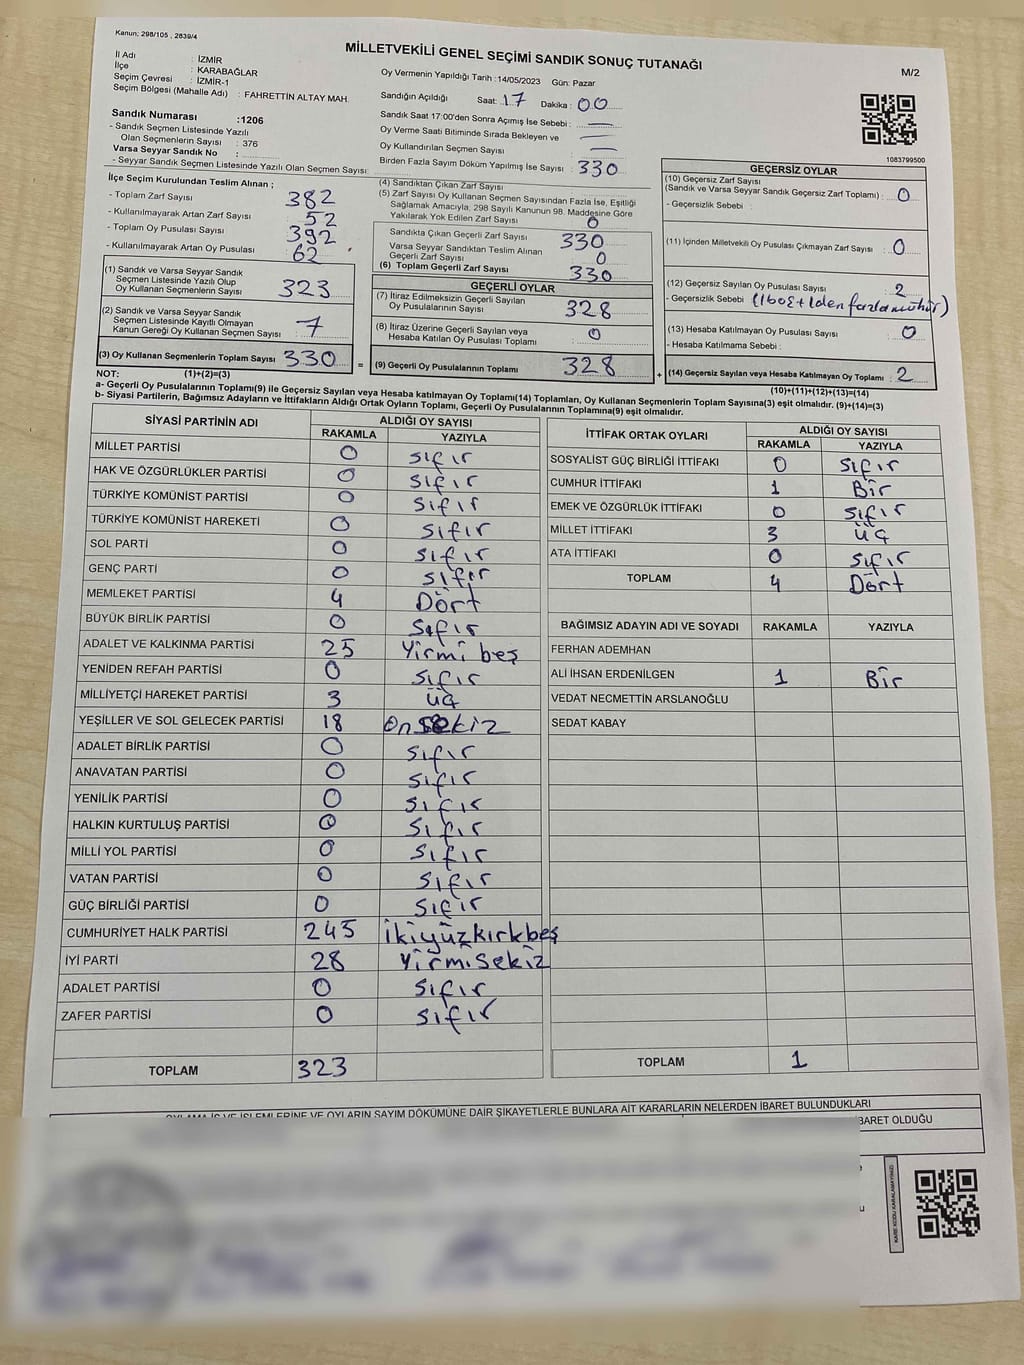 Kanun: 298/105 , 2839/4
MİLLETVEKİLİ GENEL SEÇİMİ SANDIK SONUÇ TUTANAĞI
M/2
İl Adı : İZMİR
İlçe : KARABAĞLAR
Seçim Çevresi : İZMİR-1
Seçim Bölgesi (Mahalle Adı) : FAHRETTİN ALTAY MAH.
Sandık Numarası :1206
- Sandık Seçmen Listesinde Yazılı
Olan Seçmenlerin Sayısı : 376
Varsa Seyyar Sandık No :
- Seyyar Sandık Seçmen Listesinde Yazılı Olan Seçmen Sayısı :
Oy Vermenin Yapıldığı Tarih :14/05/2023 Gün: Pazar
Sandığın Açıldığı Saat: 17 Dakika : 00
Sandık Saat 17:00'den Sonra Açımış İse Sebebi : —
Oy Verme Saati Bitiminde Sırada Bekleyen ve
Oy Kullandırılan Seçmen Sayısı : —
Birden Fazla Sayım Döküm Yapılmış İse Sayısı : 330
1083799500
İlçe Seçim Kurulundan Teslim Alınan ;
- Toplam Zarf Sayısı : 382
- Kullanılmayarak Artan Zarf Sayısı : 52
- Toplam Oy Pusulası Sayısı : 392
- Kullanılmayarak Artan Oy Pusulası : 62
(1) Sandık ve Varsa Seyyar Sandık
Seçmen Listesinde Yazılı Olup
Oy Kullanan Seçmenlerin Sayısı : 323
(2) Sandık ve Varsa Seyyar Sandık
Seçmen Listesinde Kayıtlı Olmayan
Kanun Gereği Oy Kullanan Seçmen Sayısı : 7
(3) Oy Kullanan Seçmenlerin Toplam Sayısı : 330
(4) Sandıktan Çıkan Zarf Sayısı
(5) Zarf Sayısı Oy Kullanan Seçmen Sayısından Fazla İse, Eşitliği
Sağlamak Amacıyla, 298 Sayılı Kanunun 98. Maddesine Göre
Yakılarak Yok Edilen Zarf Sayısı : 0
Sandıkta Çıkan Geçerli Zarf Sayısı : 330
Varsa Seyyar Sandıktan Teslim Alınan
Geçerli Zarf Sayısı : 0
(6) Toplam Geçerli Zarf Sayısı : 330
GEÇERLİ OYLAR
(7) İtiraz Edilmeksizin Geçerli Sayılan
Oy Pusulalarının Sayısı : 328
(8) İtiraz Üzerine Geçerli Sayılan veya
Hesaba Katılan Oy Pusulası Toplamı : 0
= (9) Geçerli Oy Pusulalarının Toplamı : 328
GEÇERSİZ OYLAR
(10) Geçersiz Zarf Sayısı
(Sandık ve Varsa Seyyar Sandık Geçersiz Zarf Toplamı) : 0
- Geçersizlik Sebebi :
(11) İçinden Milletvekili Oy Pusulası Çıkmayan Zarf Sayısı : 0
(12) Geçersiz Sayılan Oy Pusulası Sayısı : 2
- Geçersizlik Sebebi (1 boş + 1 den fazla mühür)
(13) Hesaba Katılmayan Oy Pusulası Sayısı : 0
- Hesaba Katılmama Sebebi :
+ (14) Geçersiz Sayılan veya Hesaba Katılmayan Oy Toplamı : 2
NOT: (1)+(2)=(3) (10)+(11)+(12)+(13)=(14)
a- Geçerli Oy Pusulalarının Toplamı(9) ile Geçersiz Sayılan veya Hesaba katılmayan Oy Toplamı(14) Toplamları, Oy Kullanan Seçmenlerin Toplam Sayısına(3) eşit olmalıdır. (9)+(14)=(3)
b- Siyasi Partilerin, Bağımsız Adayların ve İttifakların Aldığı Ortak Oyların Toplamı, Geçerli Oy Pusulalarının Toplamına(9) eşit olmalıdır.
SİYASİ PARTİNİN ADI ALDIĞI OY SAYISI
RAKAMLA YAZIYLA
MİLLET PARTİSİ 0 sıfır
HAK VE ÖZGÜRLÜKLER PARTİSİ 0 sıfır
TÜRKİYE KOMÜNİST PARTİSİ 0 sıfır
TÜRKİYE KOMÜNİST HAREKETİ 0 sıfır
SOL PARTİ 0 sıfır
GENÇ PARTİ 0 sıfır
MEMLEKET PARTİSİ 4 Dört
BÜYÜK BİRLİK PARTİSİ 0 Sıfır
ADALET VE KALKINMA PARTİSİ 25 Yirmi beş
YENİDEN REFAH PARTİSİ 0 sıfır
MİLLİYETÇİ HAREKET PARTİSİ 3 üç
YEŞİLLER VE SOL GELECEK PARTİSİ 18 Onsekiz
ADALET BİRLİK PARTİSİ 0 sıfır
ANAVATAN PARTİSİ 0 sıfır
YENİLİK PARTİSİ 0 sıfır
HALKIN KURTULUŞ PARTİSİ 0 sıfır
MİLLİ YOL PARTİSİ 0 sıfır
VATAN PARTİSİ 0 sıfır
GÜÇ BİRLİĞİ PARTİSİ 0 sıfır
CUMHURİYET HALK PARTİSİ 245 ikiyüzkırkbeş
İYİ PARTİ 28 Yirmisekiz
ADALET PARTİSİ 0 sıfır
ZAFER PARTİSİ 0 sıfır
TOPLAM 323
İTTİFAK ORTAK OYLARI ALDIĞI OY SAYISI
RAKAMLA YAZIYLA
SOSYALİST GÜÇ BİRLİĞİ İTTİFAKI 0 sıfır
CUMHUR İTTİFAKI 1 Bir
EMEK VE ÖZGÜRLÜK İTTİFAKI 0 sıfır
MİLLET İTTİFAKI 3 üç
ATA İTTİFAKI 0 sıfır
TOPLAM 4 Dört
BAĞIMSIZ ADAYIN ADI VE SOYADI RAKAMLA YAZIYLA
FERHAN ADEMHAN
ALİ İHSAN ERDENİLGEN 1 Bir
VEDAT NECMETTİN ARSLANOĞLU
SEDAT KABAY
TOPLAM 1
OYLAMA İŞ VE İŞLEMLERİNE VE OYLARIN SAYIM DÖKÜMÜNE DAİR ŞİKAYETLERLE BUNLARA AİT KARARLARIN NELERDEN İBARET BULUNDUKLARI
BARET OLDUĞU
KARE KODU KARALAMAYINIZ!